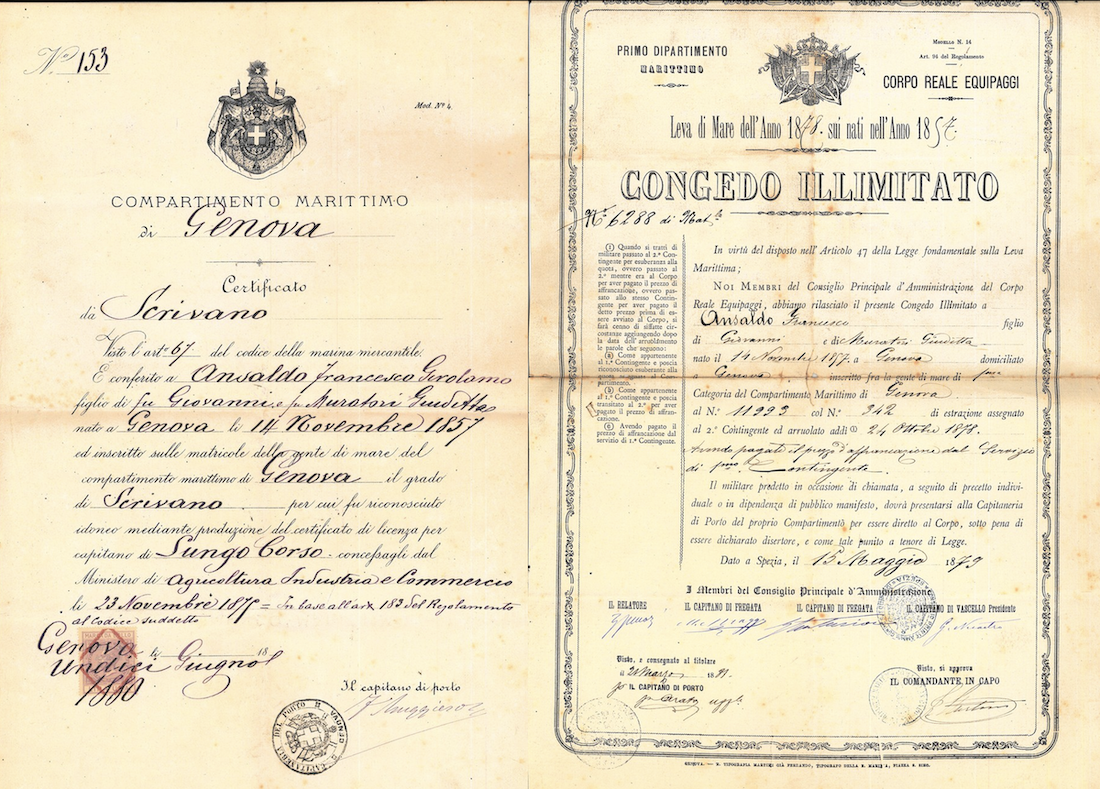 Nº 153
Mod. Nº 4.
COMPARTIMENTO MARITTIMO
di Genova
Certificato
da Scrivano
Visto l'artº 67 del codice della marina mercantile.
È conferito a Ansaldo Francesco Girolamo
figlio di fu Giovanni, e fu Muratori Giuditta
nato a Genova li 14 Novembre 1857
ed inscritto sulle matricole della gente di mare del
compartimento marittimo di Genova il grado
di Scrivano per cui fu riconosciuto
idoneo mediante produzione del certificato di licenza per
capitano di Lungo Corso concessagli dal
Ministero di Agricoltura Industria e Commercio
li 23 Novembre = In base all'art 183 del Regolamento
al Codice suddetto
Genova li 18
Undici Giugno
1880
Il capitano di porto
PRIMO DIPARTIMENTO
MARITTIMO
MODELLO N. 14
Art. 94 del Regolamento
CORPO REALE EQUIPAGGI
Leva di Mare dell'Anno 1878. sui nati nell'Anno 1857.
CONGEDO ILLIMITATO
Nº 6288 di Matla
(1) Quando si tratti di
militare passato al 2.º Con-
tingente per esuberanza alla
quota, ovvero passato al
2.º mentre era al Corpo
per aver pagato il prezzo di
affrancazione, ovvero pas-
sato allo stesso Contin-
gente per aver pagato il
detto prezzo prima di es-
sere avviato al Corpo, si
farà cenno di siffatte cir-
costanze aggiungendo dopo
la data dell'arruolamento
le parole che seguono:
Come appartenente
al 1.º Contingente e poscia
riconosciuto esuberante alla
quota assegnata al Com-
partimento.
Come appartenente
al 1.º Contingente e poscia
transitato al 2.º per aver
pagato il prezzo di affran-
cazione.
Avendo pagato il
prezzo di affrancazione dal
servizio di 1.º Contingente.
In virtù del disposto nell'Articolo 47 della Legge fondamentale sulla Leva
Marittima;
NOI MEMBRI del Consiglio Principale d'Amministrazione del Corpo
Reale Equipaggi, abbiamo rilasciato il presente Congedo Illimitato a
Ansaldo Francesco figlio
di Giovanni e di Muratori Giuditta
nato il 14 Novembre a Genova domiciliato
a Genova inscritto fra la gente di mare di pma
Categoria del Compartimento Marittimo di Genova
al N.º col N.º 342 di estrazione assegnato
al 2.º Contingente ed arruolato addì (1) 24 Ottobre 1878.
Avendo pagato il prezzo d'affrancazione dal Servizio
di pmo Contingente.
Il militare predetto in occasione di chiamata, a seguito di precetto indivi-
duale o in dipendenza di pubblico manifesto, dovrà presentarsi alla Capitaneria
di Porto del proprio Compartimento per essere diretto al Corpo, sotto pena di
essere dichiarato disertore, e come tale punito a tenore di Legge.
Dato a Spezia, il 15 Maggio 1879
I Membri del Consiglio Principale d'Amministrazione
IL RELATORE IL CAPITANO DI FREGATA IL CAPITANO DI FREGATA IL CAPITANO DI VASCELLO Presidente
Visto, e consegnato al titolare
a
IL CAPITANO DI PORTO
Visto, si approva
IL COMANDANTE IN CAPO